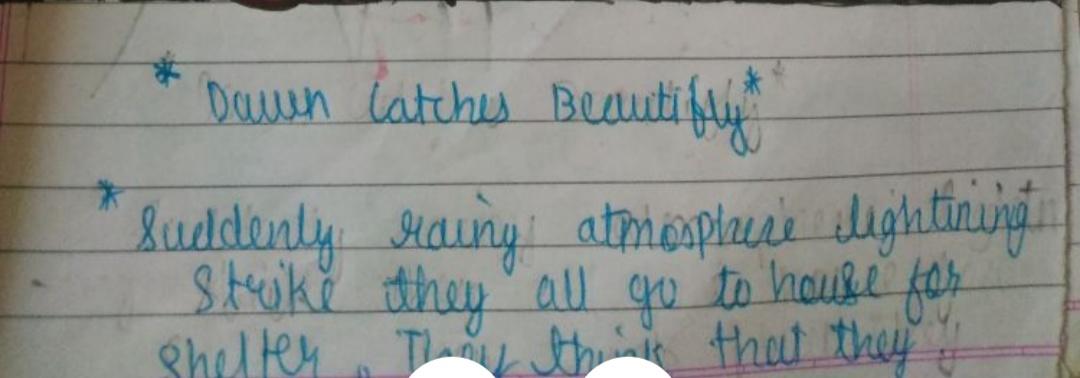 * Dawn Catches Beautifly *
* Suddenly rainy atmosphere lightining
Strike they all go to house for
shelter. They think that they